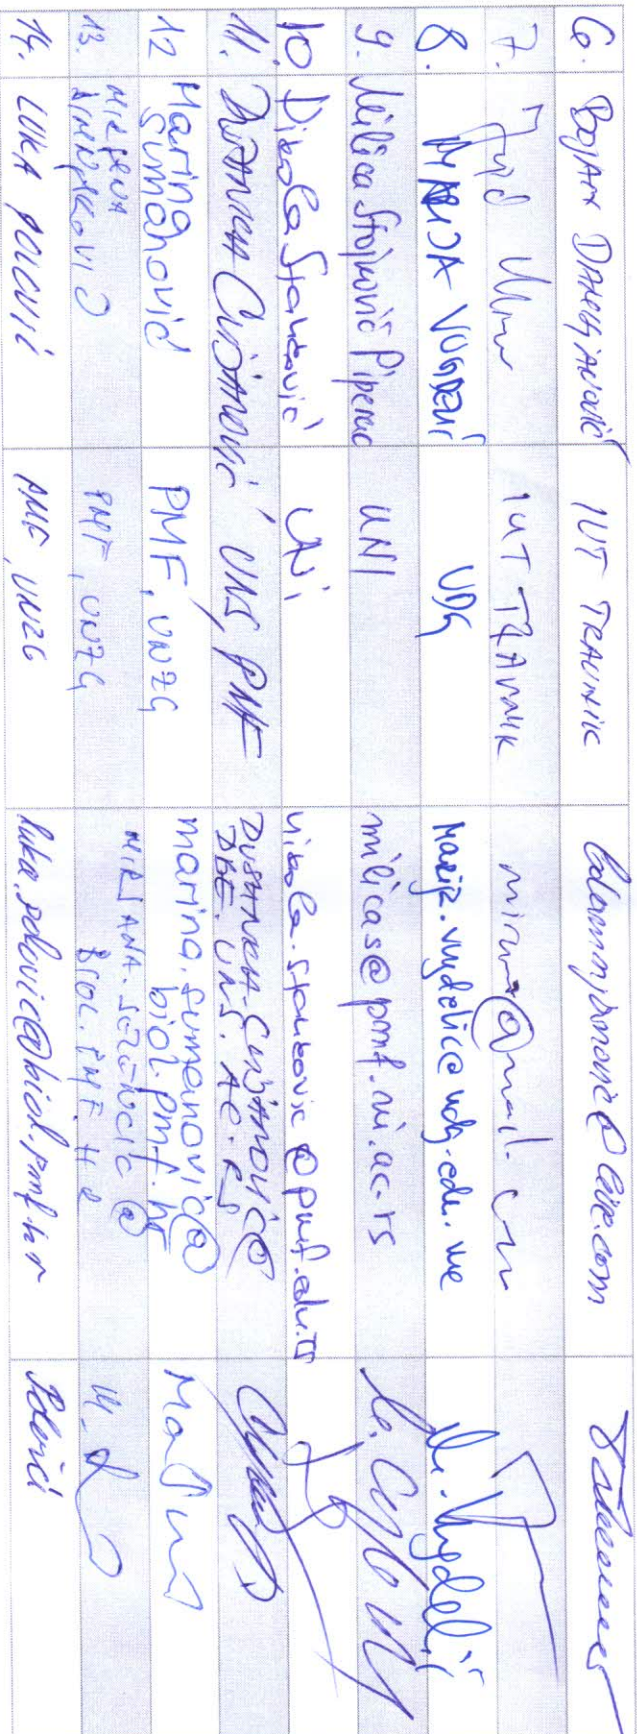 6. BOJAN DAMNJANOVIĆ IUT TRAVNIK
7. IUT TRAVNIK
8. MARIJA VUGDELIĆ UDG marija.vugdelic@udg.edu.me M. Vugdelić
9. Milica Stojković Piperac UNI milicas@pmf.ni.ac.rs
10. Nikola Stanković UNi nikola.stankovic@pmf.edu.rs
11. DUŠANKA CVIJANOVIĆ UNS, PMF
DUSANKA.CVIJANOVIC@
DBE.UNS.AC.RS
12 Marina
Šumanović PMF, UNZG marina.sumanovic@
biol.pmf.hr
13. PMF, UNZG
BIOL.PMF.HR
14. LUKA POLOVIĆ PMF, UNZG luka.polovic@biol.pmf.hr Polović